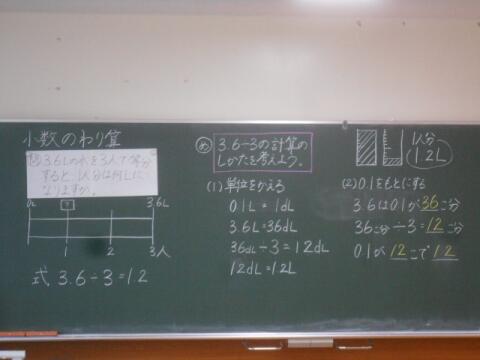 小数のわり算
問 3.6Lの水を3人で等分
すると、1人分は何Lに
なりますか。
0L ? 3.6L
1 2 3人
式 3.6÷3=1.2
め 3.6÷3の計算の
しかたを考えよう。
(1) 単位をかえる
0.1L=1dL
3.6L=36dL
36dL÷3=12dL
12dL=1.2L
1人分
1.2L
(2) 0.1をもとにする
3.6は0.1が36こ分
36こ分÷3=12こ分
0.1が12こで1.2